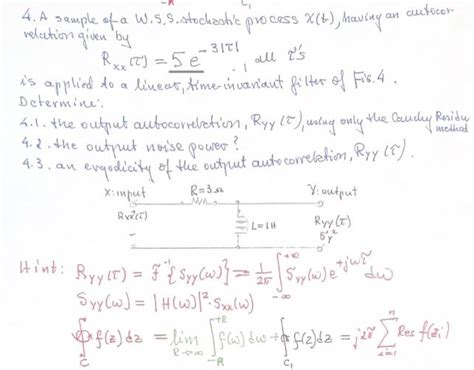 4. A sample of a W.S.S. stochastic process X(t), having an autocor-
relation given by
Rxx(τ) = 5e^-3|τ| , all τ's
is applied to a linear, time-invariant filter of Fig.4.
Determine:
4.1. the output autocorrelation, Ryy(τ), using only the Cauchy Residu method
4.2. the output noise power?
4.3. an ergodicity of the output autocorrelation, Ryy(τ).
X: input R=3Ω Y: output
Rxx(τ) L=1H Ryy(τ)
σy²
Hint: Ryy(τ) = F^-1{Syy(ω)} = 1/2π ∫_-∞^+∞ Syy(ω) e^+jωτ dω
Syy(ω) = |H(ω)|² · Sxx(ω)
∮_C f(z)dz = lim_R→∞ ∫_-R^+R f(ω)dω + ∮_C1 f(z)dz = j2π Σ_i=1^n Res f(zi)